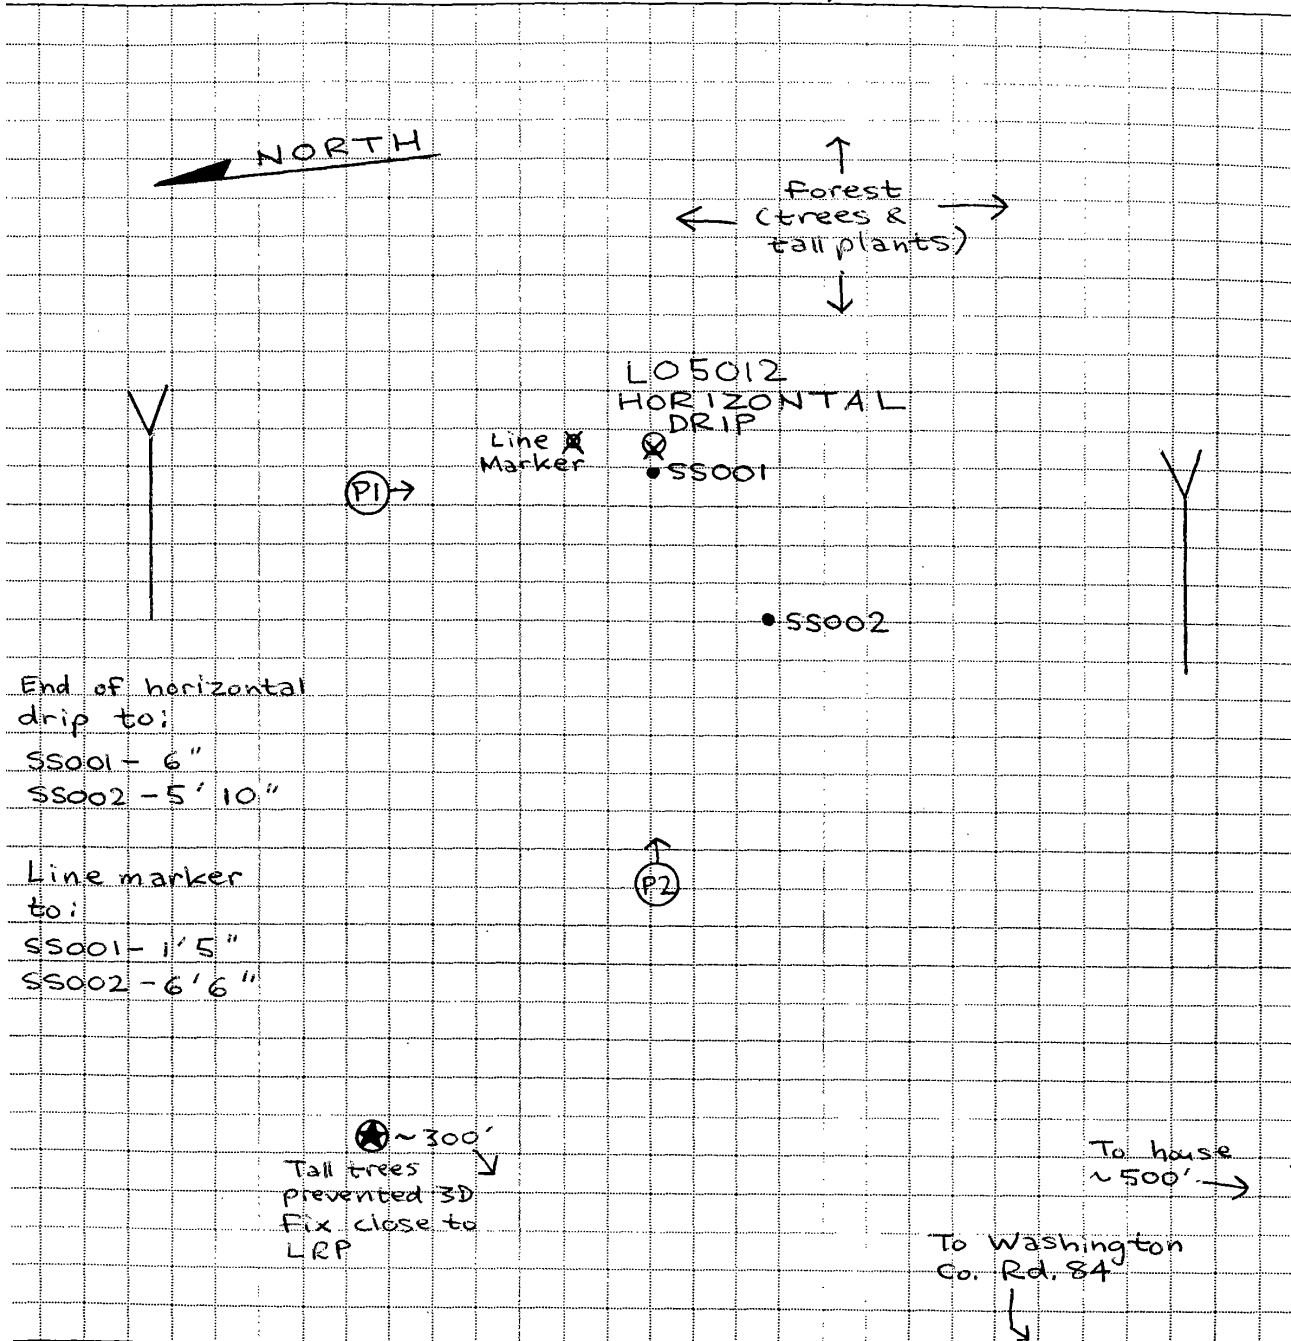 NORTH
Forest
(trees &
tall plants)
LO5012
HORIZONTAL
DRIP
Line
Marker
SS001
P1
SS002
End of horizontal
drip to:
SS001 - 6"
SS002 - 5' 10"
Line marker
to:
SS001 - 1' 5"
SS002 - 6' 6"
P2
~ 300'
Tall trees
prevented 3D
Fix close to
LRP
To house
~ 500'
To Washington
Co. Rd. 84